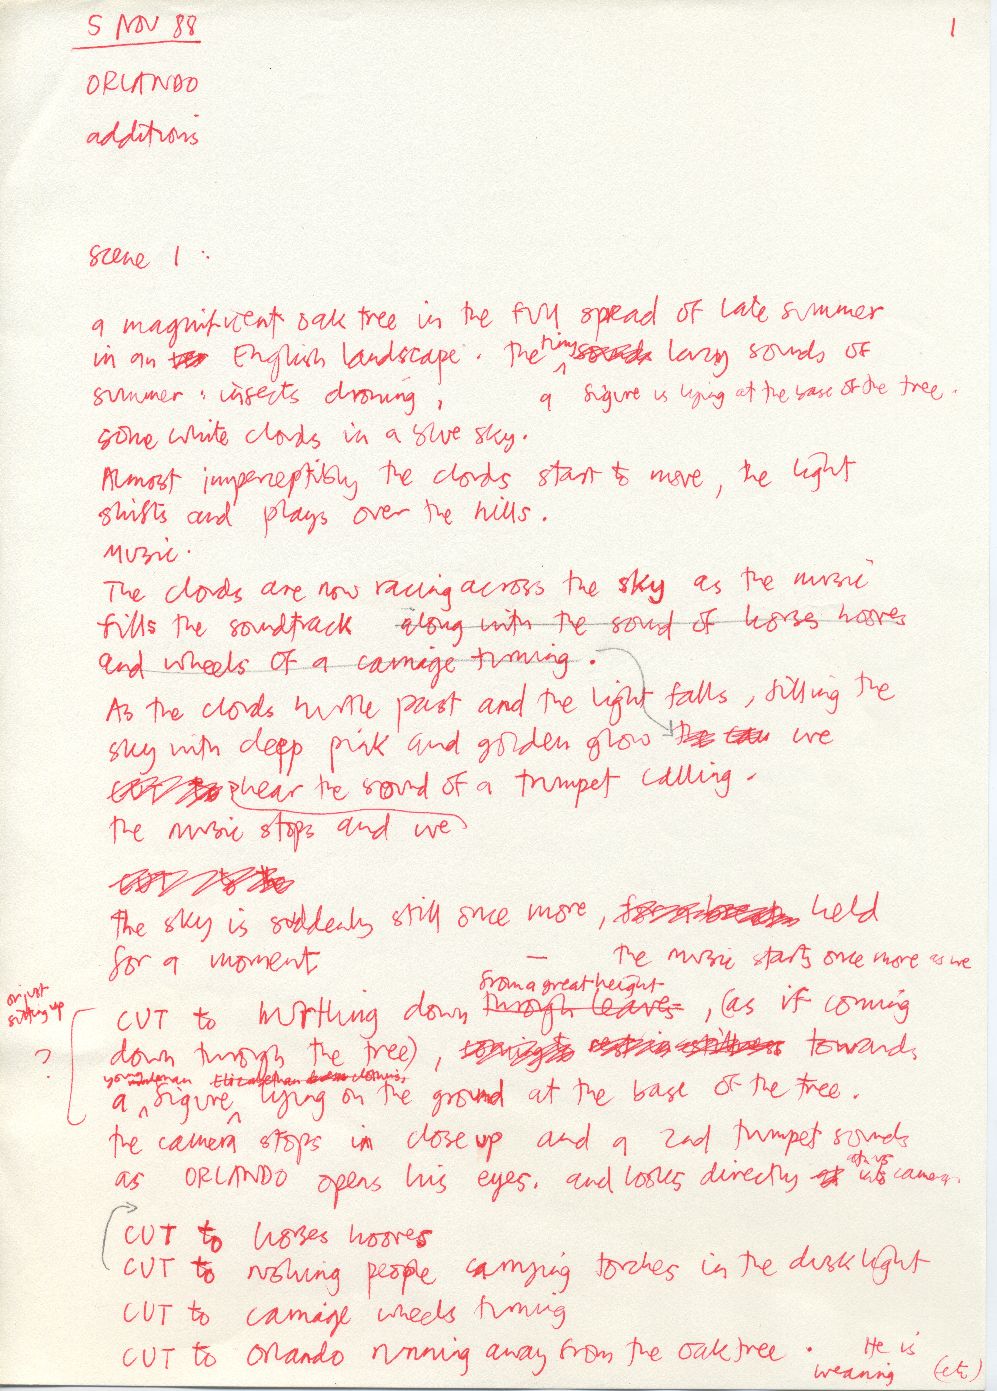 5 NOV 88
1
ORLANDO
additions
scene 1 :
a magnificent oak tree in the full spread of late summer
in an English landscape. The tiny sounds lazy sounds of
summer : insects droning, a figure is lying at the base of the tree.
some white clouds in a blue sky.
Almost imperceptibly the clouds start to move, the light
shifts and plays over the hills.
Music.
The clouds are now racing across the sky as the music
fills the soundtrack along with the sound of horses hooves
and wheels of a carriage turning.
As the clouds hurtle past and the light falls, filling the
sky with deep pink and golden glow we
hear the sound of a trumpet calling.
the music stops and we
the sky is suddenly still once more, held
for a moment — the music starts once more as we
or just
sitting up
?
from a great height
CUT to hurtling down through leaves, (as if coming
down through the tree), towards
young Elizabethan clothing
a figure lying on the ground at the base of the tree.
the camera stops in close up and a 2nd trumpet sounds
as ORLANDO opens his eyes. and looks directly at us into camera.
CUT to horses hooves
CUT to rushing people carrying torches in the dusk light
CUT to carriage wheels turning
CUT to Orlando running away from the oak tree. He is
wearing (etc)